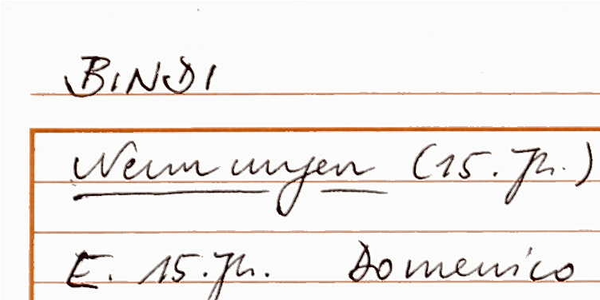 BINDI
Nennungen (15. Jh.)
E. 15. Jh. Domenico